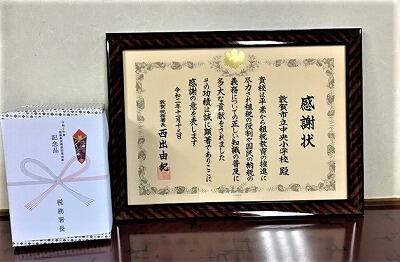 感謝状
敦賀市立中央小学校 殿
貴校は平素から租税教育の推進に
尽力され租税の役割や国民の納税の
義務についての正しい知識の普及に
多大な貢献をされました
その功績は誠に顕著でありここに
感謝の意を表します
令和二年十月十三日
敦賀税務署長 西出由紀
記念品
税務署長